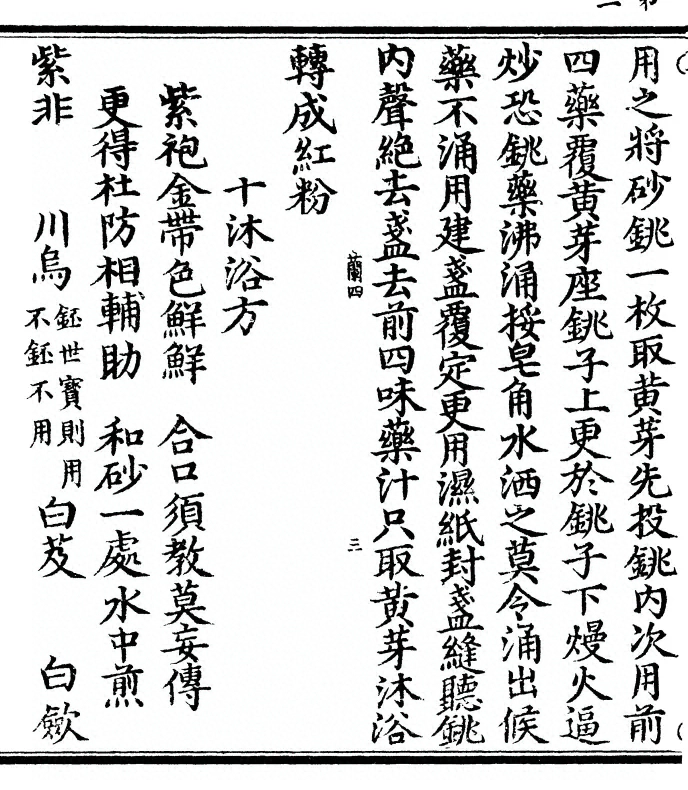 用之將砂銚一枚取黄芽先投銚内次用前
四藥覆黄芽座銚子上更於銚子下熳火逼
炒恐銚藥沸涌挼皂角水洒之莫令涌出候
藥不涌用建盞覆定更用濕紙封盞縫聽銚
内聲絶去盞去前四味藥汁只取黄芽沐浴
蘭四
三
轉成紅粉
十沐浴方
紫袍金帶色鮮鮮 合口須教莫妄傳
更得杜防相輔助 和砂一處水中煎
紫非 川烏 鉟世寶則用不鉟不用 白芨 白歛